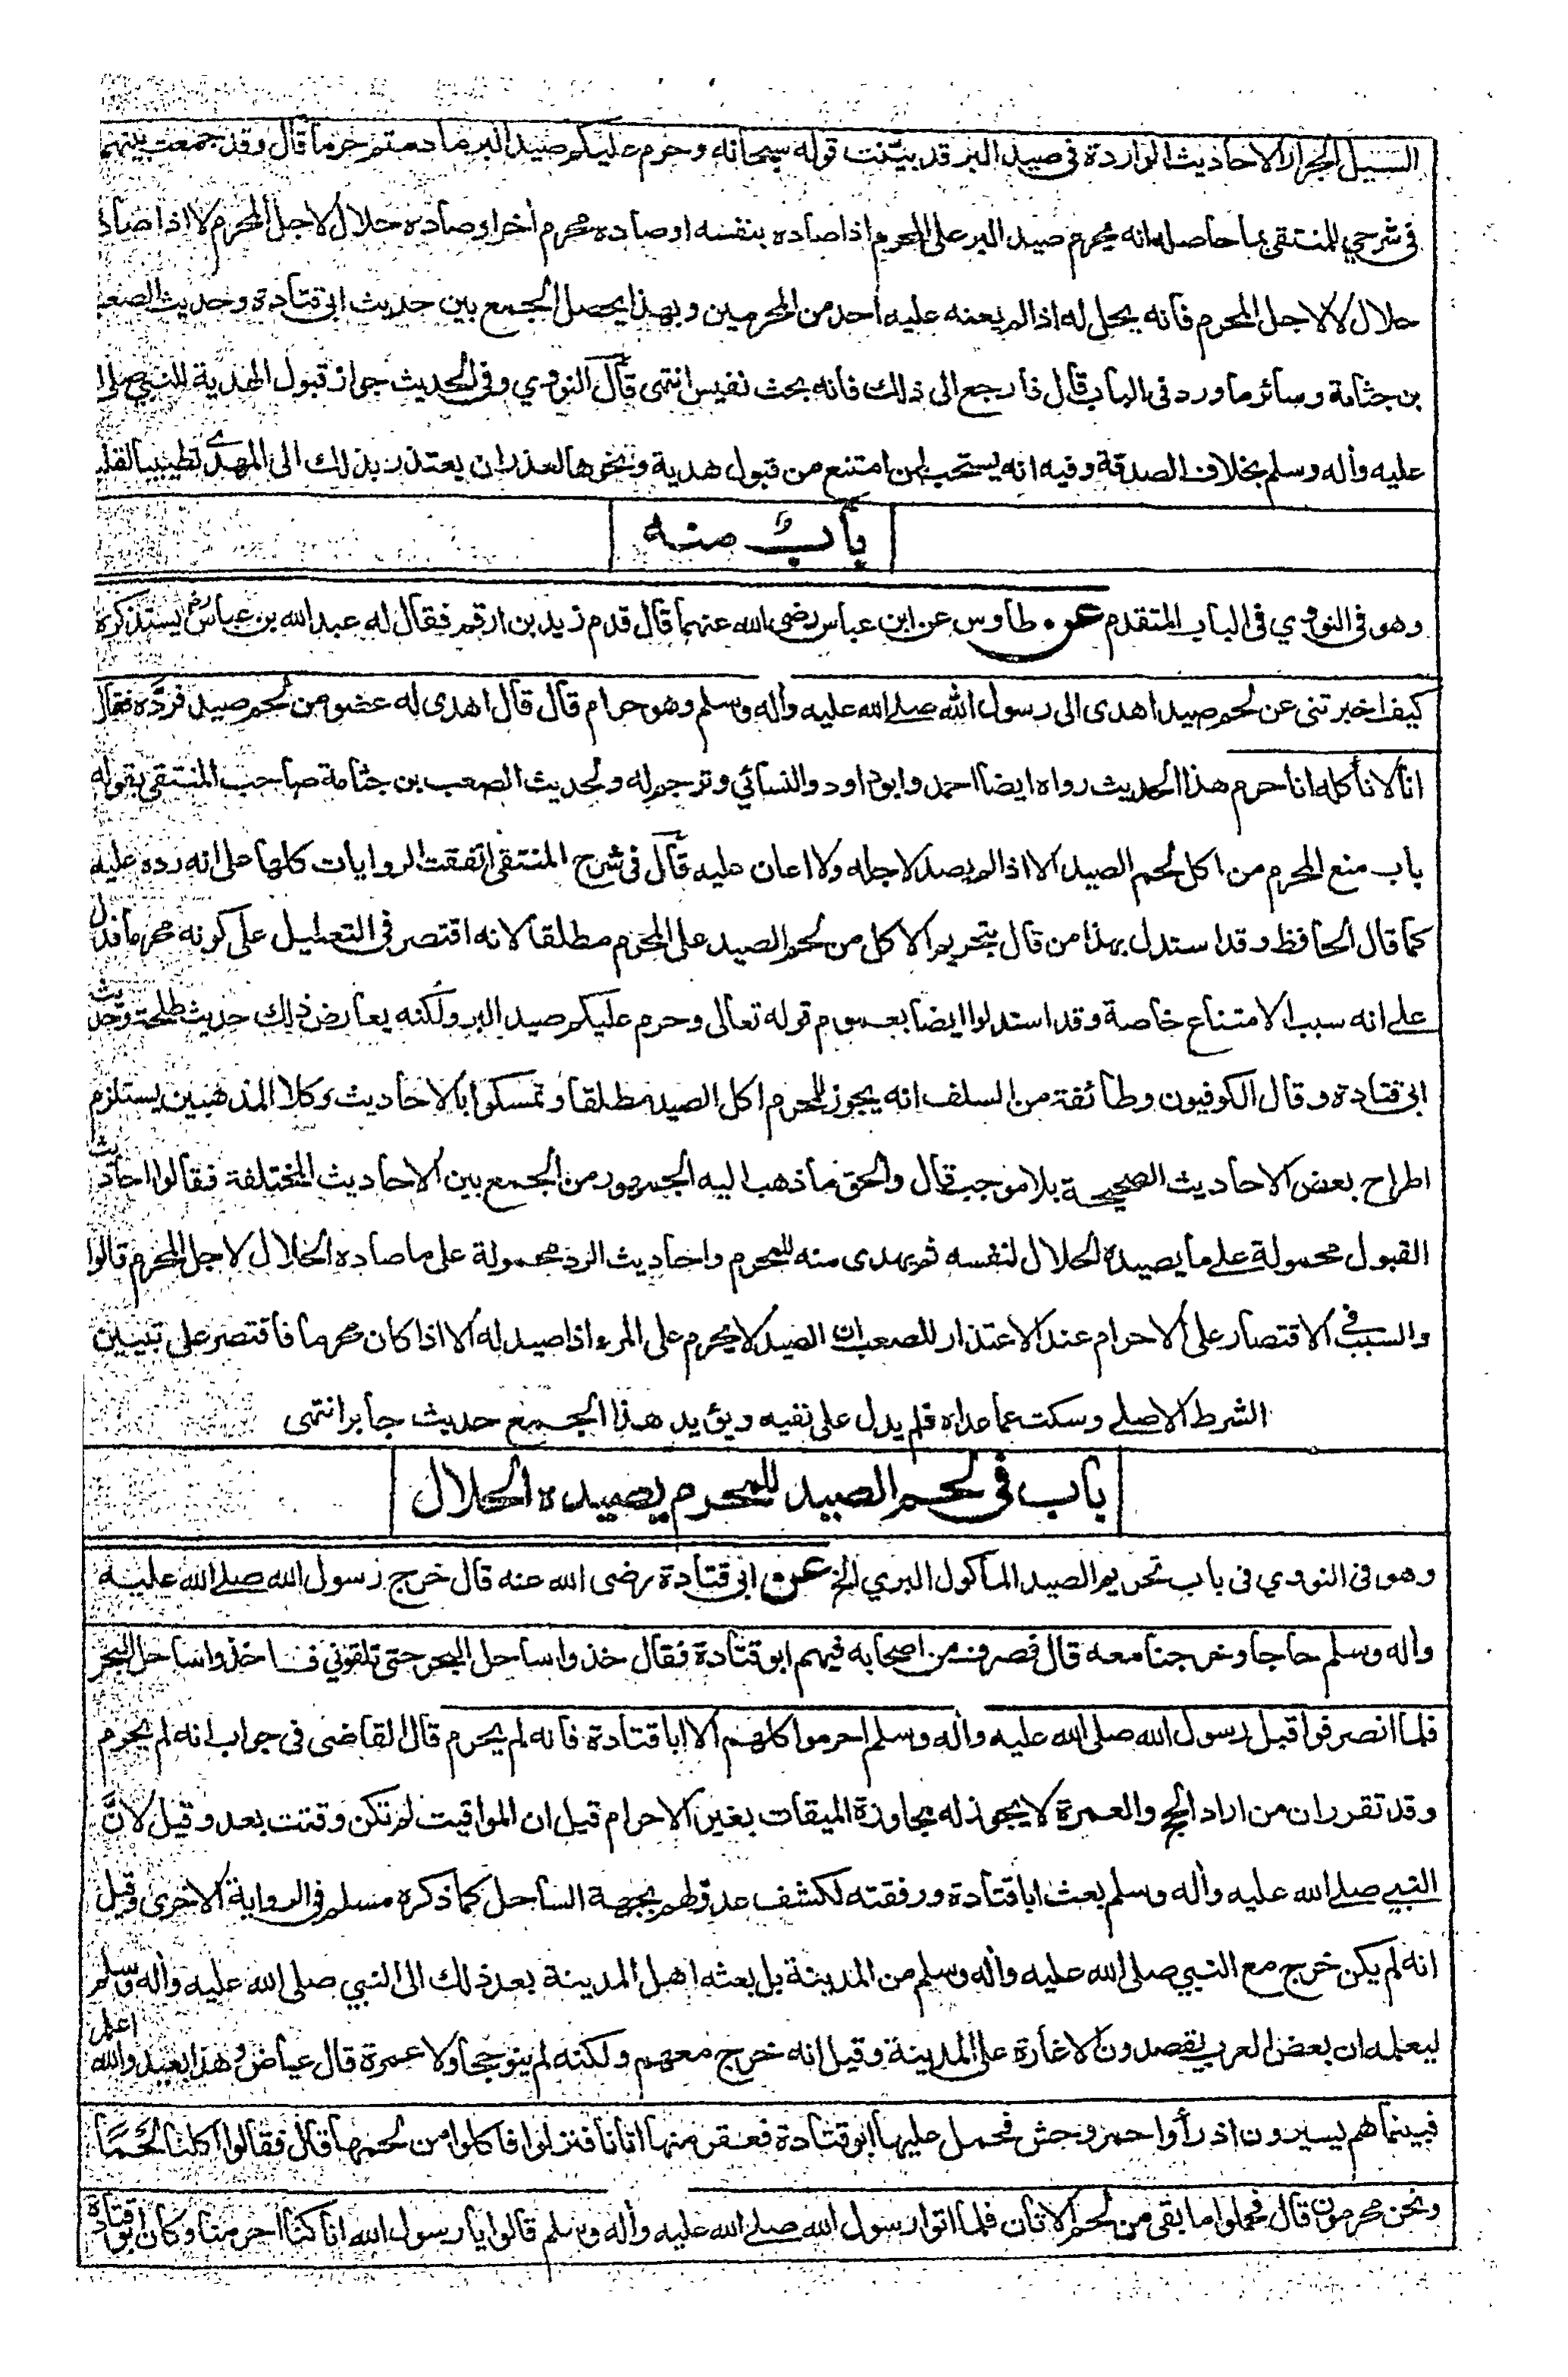 السيل الجرار الاحاديث الواردة فى صيد البر قد بيّنت قوله سبحانه وحرم عليكم صيد البر ما دمتم حرما قال وقد جمعت بينهما
فى شرحي للمنتقى بما حاصله انه يحرم صيد البر على المحرم اذا صاده بنفسه او صاده محرم اخر او صاده حلال لاجل المحرم لا اذا صاد
حلال لا لاجل المحرم فانه يحل له اذا لم يعنه عليه احد من المحرمين وبهذا يحصل الجمع بين حديث ابى قتادة وحديث الصعب
بن جثامة وسائر ما ورد فى الباب قال فارجع الى ذلك فانه بحث نفيس انتهى قال النووي وفى الحديث جواز قبول الهدية للنبي صلى الله
عليه وأله وسلم بخلاف الصدقة وفيه انه يستحب لمن امتنع من قبول هدية ونحوها لعذر ان يعتذر بذلك الى المهدي تطييبا لقلبه
باب منه
وهو فى النووي فى الباب المتقدم عن طاوس عن ابن عباس رضى الله عنهما قال قدم زيد بن ارقم فقال له عبد الله بن عباس رض يستذكره
كيف اخبرتنى عن لحم صيد اهدى الى رسول الله صلى الله عليه وأله وسلم وهو حرام قال قال اهدى له عضو من لحم صيد فردّه فقال
انا لا نأكله انا حرم هذا الحديث رواه ايضا احمد وابوداود والنسائي وترجم له ولحديث الصعب بن جثامة صاحب المنتقى بقوله
باب منع المحرم من اكل لحم الصيد الا اذا لم يصد لاجله ولا اعان عليه قال فى شرح المنتقى اتفقت الروايات كلها على انه رده عليه
كما قال الحافظ وقد استدل بهذا من قال بتحريم الاكل من لحم الصيد على المحرم مطلقا لانه اقتصر فى التعليل على كونه محرما فدل
على انه سبب الامتناع خاصة وقد استدلوا ايضا بعموم قوله تعالى وحرم عليكم صيد البر ولكنه يعارض ذلك حديث طلحة وحديث
ابى قتادة وقال الكوفيون وطائفة من السلف انه يجوز للمحرم اكل الصيد مطلقا وتمسكوا بالاحاديث وكلا المذهبين يستلزم
اطراح بعض الاحاديث الصحيحة بلا موجب قال والحق ما ذهب اليه الجمهور من الجمع بين الاحاديث المختلفة فقالوا احاديث
القبول محمولة على ما يصيده الحلال لنفسه ثم يهدى منه للمحرم واحاديث الرد محمولة على ما صاده الحلال لاجل المحرم قالوا
والسبب فى الاقتصار على الاحرام عند الاعتذار للصعب ان الصيد لا يحرم على المرء اذا صيد له الا اذا كان محرما فاقتصر على تبيين
الشرط الاصلي وسكت عما عداه فلم يدل على نفيه ويؤيد هذا الجمع حديث جابر انتهى
باب فى لحم الصيد للمحرم يصيده الحلال
وهو فى النووي فى باب تحريم الصيد المأكول البري الخ عن ابى قتادة رضى الله عنه قال خرج رسول الله صلى الله عليه
وأله وسلم حاجا وخرجنا معه قال فصرف من اصحابه فيهم ابو قتادة فقال خذوا ساحل البحر حتى تلقوني فاخذوا ساحل البحر
فلما انصرفوا قبل رسول الله صلى الله عليه وأله وسلم احرموا كلهم الا ابا قتادة فانه لم يحرم قال القاضى فى جواب انه لم يحرم
وقد تقرر ان من اراد الحج والعمرة لا يجوز له مجاوزة الميقات بغير الاحرام قيل ان المواقيت لم تكن وقتت بعد وقيل لانَّ
النبي صلى الله عليه وأله وسلم بعث ابا قتادة ورفقته لكشف عدوّ لهم بجهة الساحل كما ذكره مسلم فى الرواية الاخرى وقيل
انه لم يكن خرج مع النبي صلى الله عليه وأله وسلم من المدينة بل بعثه اهل المدينة بعد ذلك الى النبي صلى الله عليه وأله وسلم
ليعلمه ان بعض العرب يقصدون الاغارة على المدينة وقيل انه خرج معهم ولكنه لم ينو حجا ولا عمرة قال عياض وهذا بعيد والله اعلم
فبينما هم يسيرون اذ رأوا حمر وحش فحمل عليها ابو قتادة فعقر منها اتانا فنزلوا فاكلوا من لحمها قال فقالوا اكلنا لحَمًا
ونحن محرمون قال فحملوا ما بقى من لحم الاتان فلما اتوا رسول الله صلى الله عليه وأله وسلم قالوا يا رسول الله انا كنا احرمنا وكان ابو قتادة